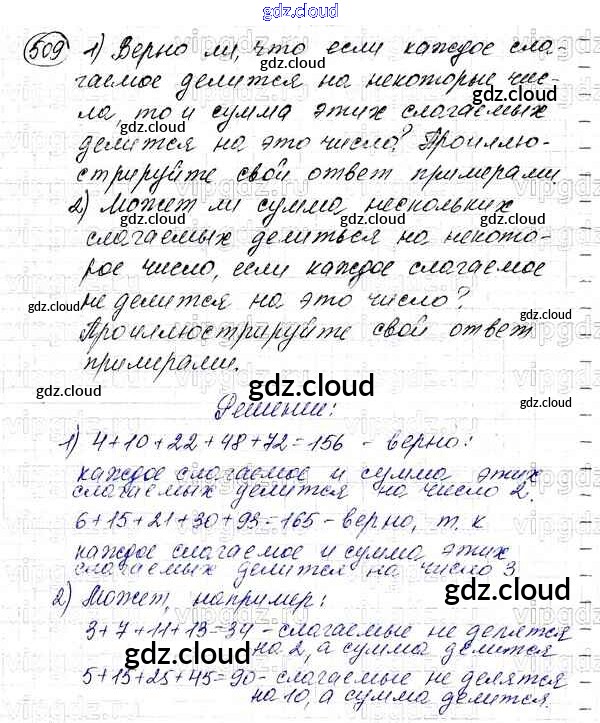 gdz.cloud
509 1) Верно ли, что если каждое сла-
гаемое делится на некоторые чис-
ла, то и сумма этих слагаемых
делится на это число? Проиллю-
стрируйте свой ответ примерами.
2) Может ли сумма нескольких
слагаемых делиться на некото-
рое число, если каждое слагаемое
не делится на это число?
Проиллюстрируйте свой ответ
примерами.
gdz.cloud
Решение:
1) 4+10+22+48+72=156 - верно:
каждое слагаемое и сумма этих
слагаемых делится на число 2.
6+15+21+30+93=165 - верно, т.к
каждое слагаемое и сумма этих
слагаемых делится на число 3
2) Может, например:
3+7+11+13=34 - слагаемые не делятся
на 2, а сумма делится
5+15+25+45=90 - слагаемые не делятся
на 10, а сумма делится.
gdz.cloud